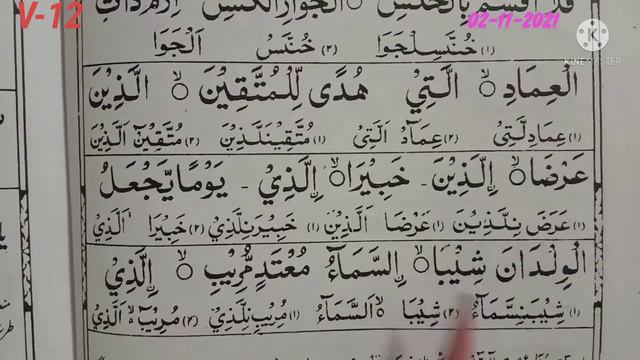 V-12
02-11-2021
KINEMASTER
فَلَآ اُقْسِمُ بِالْخُنَّسِ ۙ الْجَوَارِ الْكُنَّسِ
(۱) خُنَّسِلْجَوَا (۲) خُنَّسْ اَلْجَوَا
الْعِمَادِ ۙ الَّتِيْ هُدًى لِّلْمُتَّقِيْنَ ۙ الَّذِيْنَ
(۱) عِمَادِلَّتِيْ (۲) عِمَادْ اَلَّتِيْ (۱) مُتَّقِيْنَلَّذِيْنَ (۲) مُتَّقِيْنْ اَلَّذِيْنَ
عَرْضَا ۙ اِ۟لَّذِيْنَ ۔ خَبِيْرًا ۙ اِ۟لَّذِيْ ۔ يَوْمًا يَّجْعَلُ
(۱) عَرْضَ نِلَّذِيْنَ (۲) عَرْضَا اَلَّذِيْنَ (۱) خَبِيْرَنِلَّذِيْ (۲) خَبِيْرَا اَلَّذِيْ
الْوِلْدَانَ شِيْبَا ۙ اِ۟لسَّمَآءُ مُعْتَدٍ مُّرِيْبِ ۙ اِ۟لَّذِيْ
(۱) شِيْبَنِسَّمَآءُ (۲) شِيْبَا ۙ اَلسَّمَآءُ (۱) مُرِيْبِنِلَّذِيْ (۲) مُرِيْبْ ۙ اَلَّذِيْ